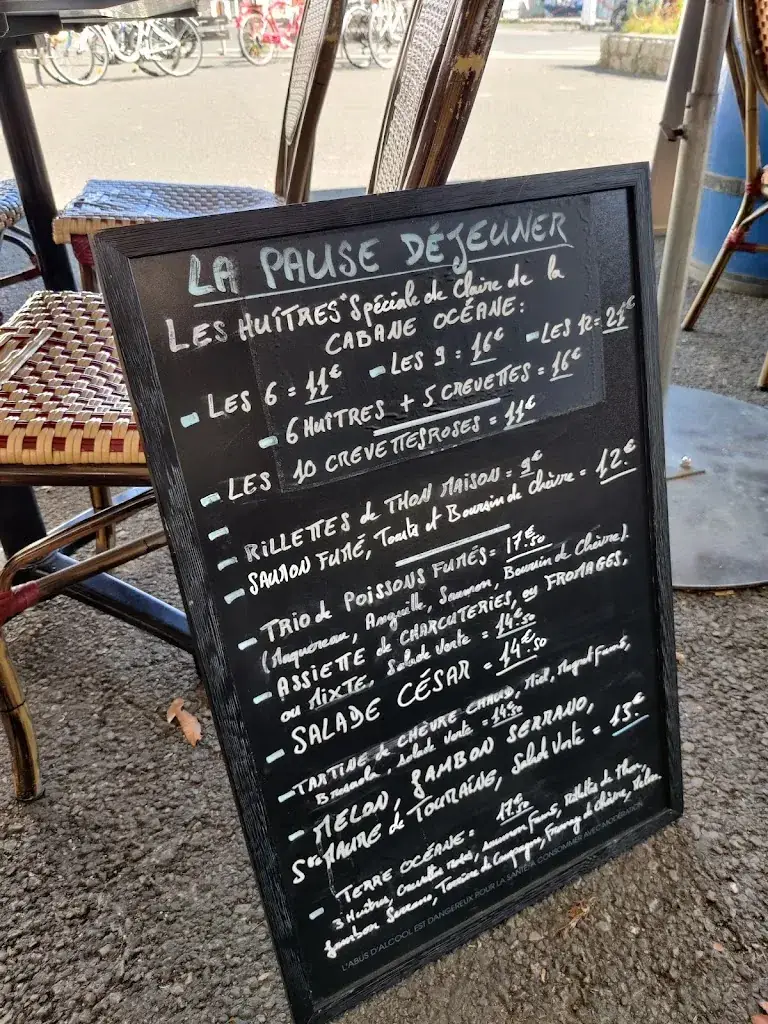 LA PAUSE DÉJEUNER
LES HUÎTRES "Spéciale de Claire de la
CABANE OCÉANE:
- LES 6 = 11€ - LES 9 = 16€ - LES 12 = 21€
- 6 HUÎTRES + 5 CREVETTES = 16€
- LES 10 CREVETTES ROSES = 11€
- RILLETTES de THON MAISON = 9€
- SAUMON FUMÉ, Toasts et Boursin de chèvre = 12.€
- TRIO de POISSONS FUMÉS = 17€.50
(Maquereau, Anguille, Saumon, Boursin de Chèvre).
- ASSIETTE de CHARCUTERIES, ou FROMAGES,
ou MIXTE, Salade Verte = 14€.50
- SALADE CÉSAR = 14€.50
- TARTINE de CHÈVRE CHAUD, Miel, Magret fumé,
salade Verte = 14.50
- MELON, JAMBON SERRANO,
Ste MAURE de TOURAINE, Salade Verte = 15.€
- TERRE OCÉANE = 17.50
3 Huîtres, Crevettes roses, saumon fumé, Rillettes de Thon,
Jambon Serrano, Terrine de Campagne, Fromage de chèvre, Melon
L'ABUS D'ALCOOL EST DANGEREUX POUR LA SANTÉ, À CONSOMMER AVEC MODÉRATION